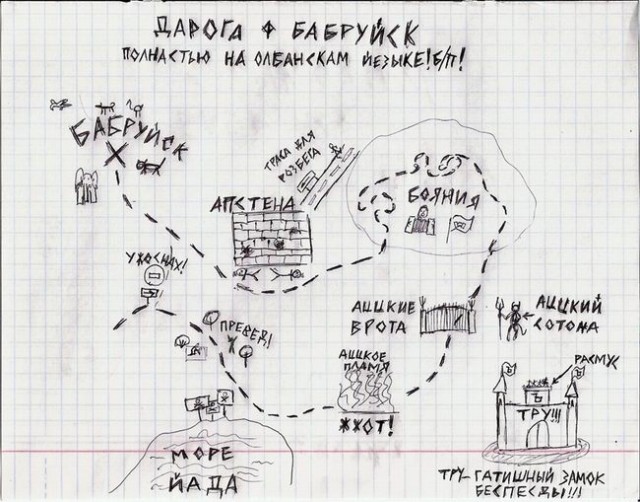 ДАРОГА Ф БАБРУЙСК
ПОЛНАСТЬЮ НА ОЛБАНСКАМ ЙЕЗЫКЕ!Б/П!
БАБРУЙСК
ТРАСА ДЛЯ
РОЗБЕГА
АПСТЕНА
БОЯНИЯ
УЖОСНАХ!
ПРЕВЕД!
АЦЦКИЕ
ВРОТА
АЦЦКИЙ
СОТОНА
АЦЦКОЕ
ПЛАМЯ
ЖЖОТ!
РАСМУС
ТРУ!!!
ТРУ-ГАТИШНЫЙ ЗАМОК
БЕСПЕСДЫ!!!
МОРЕ
ЙАДА